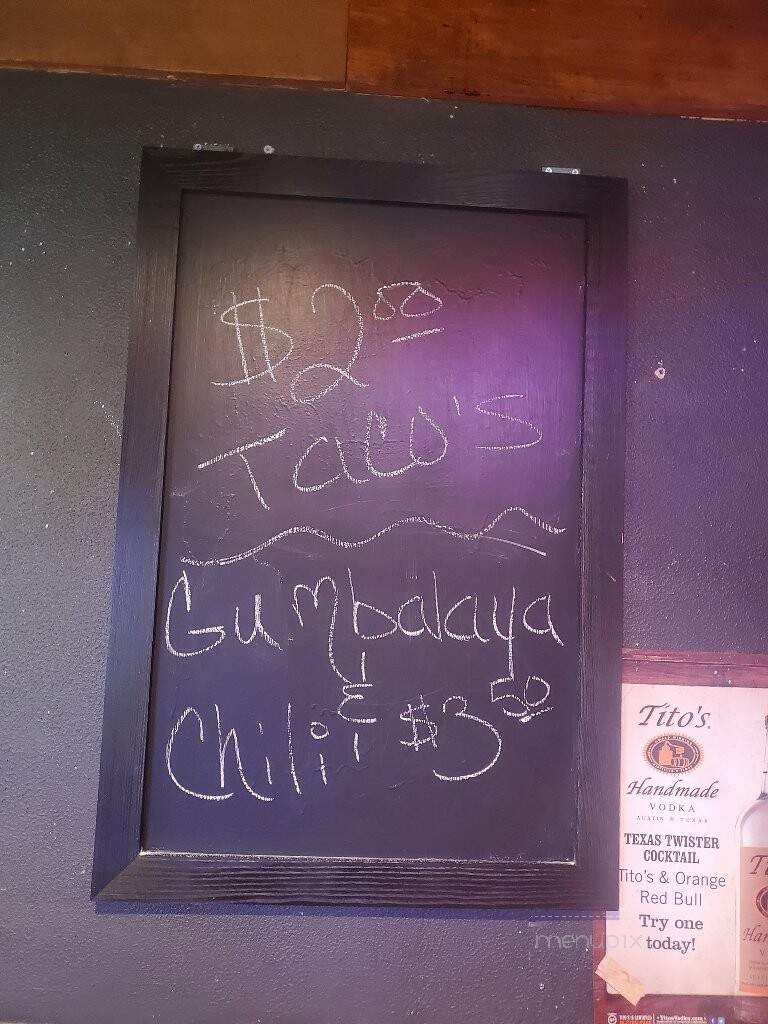 $2.00
Taco's
Gumbalaya
&
Chili $3.50
Tito's.
Handmade
VODKA
AUSTIN TEXAS
TEXAS TWISTER
COCKTAIL
Tito's & Orange
Red Bull
Try one
today!
menupix